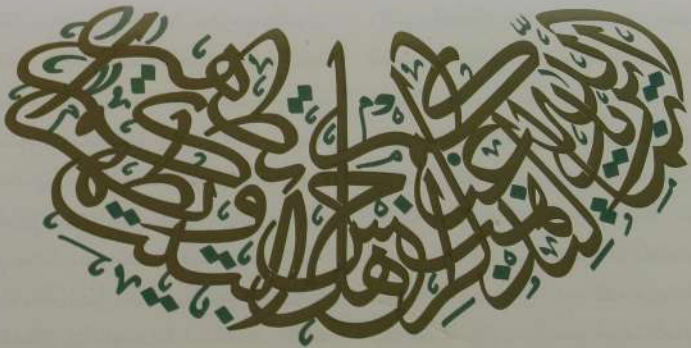 إنما يريد الله ليذهب عنكم الرجس أهل البيت ويطهركم تطهيرا